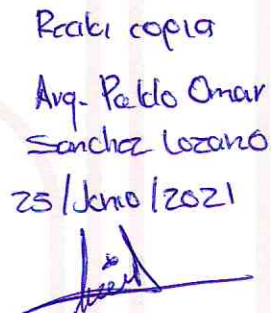 Recibi copia
Arq. Pablo Omar
Sanchez Lozano
25/Junio/2021